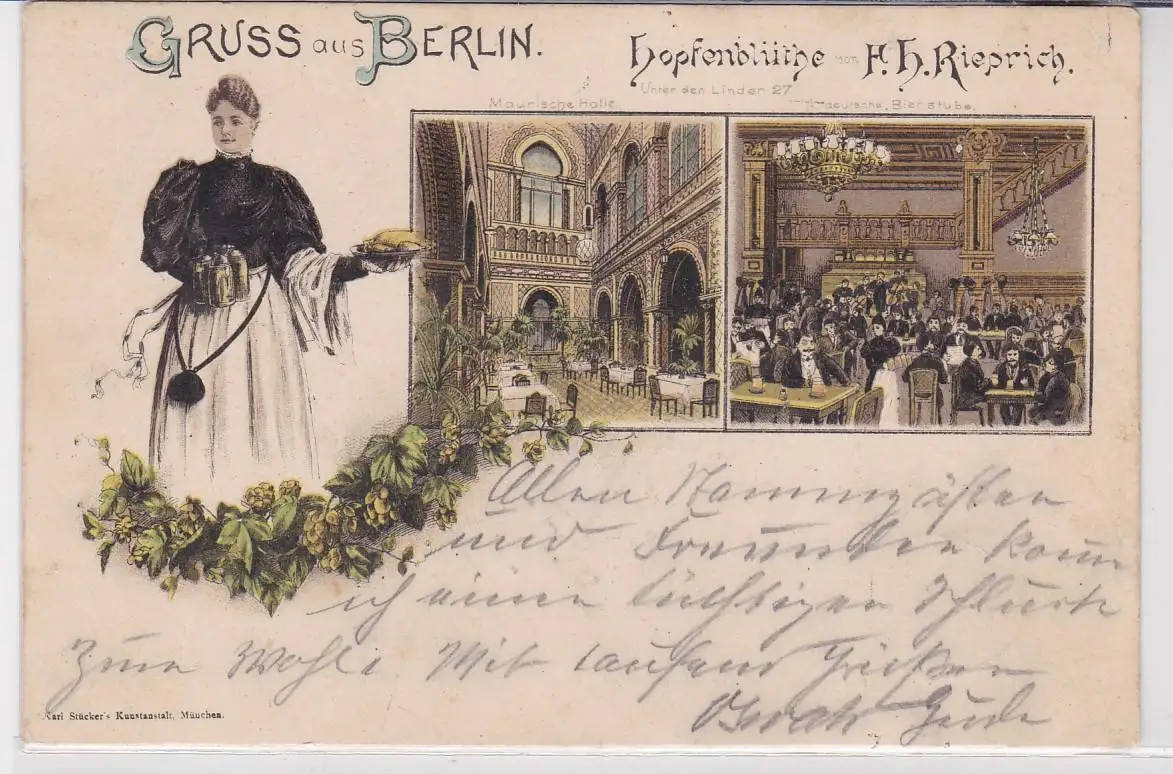 GRUSS aus BERLIN.
Hopfenblüthe von F. H. Rieprich.
Unter den Linden 27
Maurische Halle.
Bierstube.
Allen
und Freunden
ich einen tüchtigen Schluck
Zum Wohle Mit tausend Grüßen
Karl Stücker's Kunstanstalt, München.